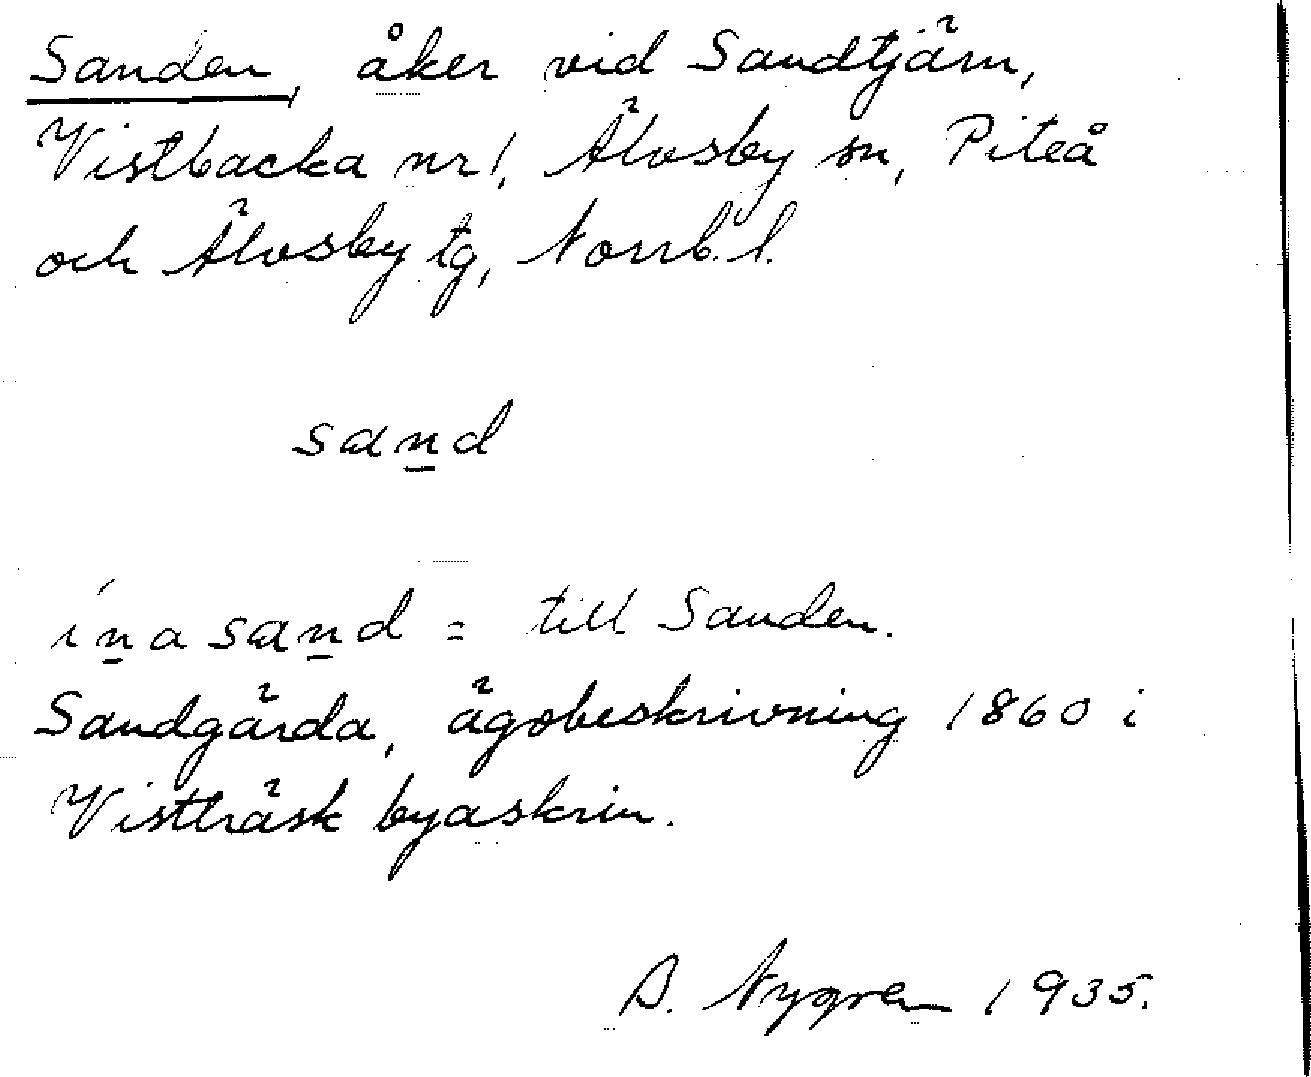 Sanden, åker vid Sandtjärn,
Vistbacka nr 1, Älvsby sn, Piteå
och Älvsby tg, Norrb. l.
sand
ína sand = till Sanden.
Sandgärda, ägobeskrivning 1860 i
Vistträsk byaskrin.
B. Nygren 1935.